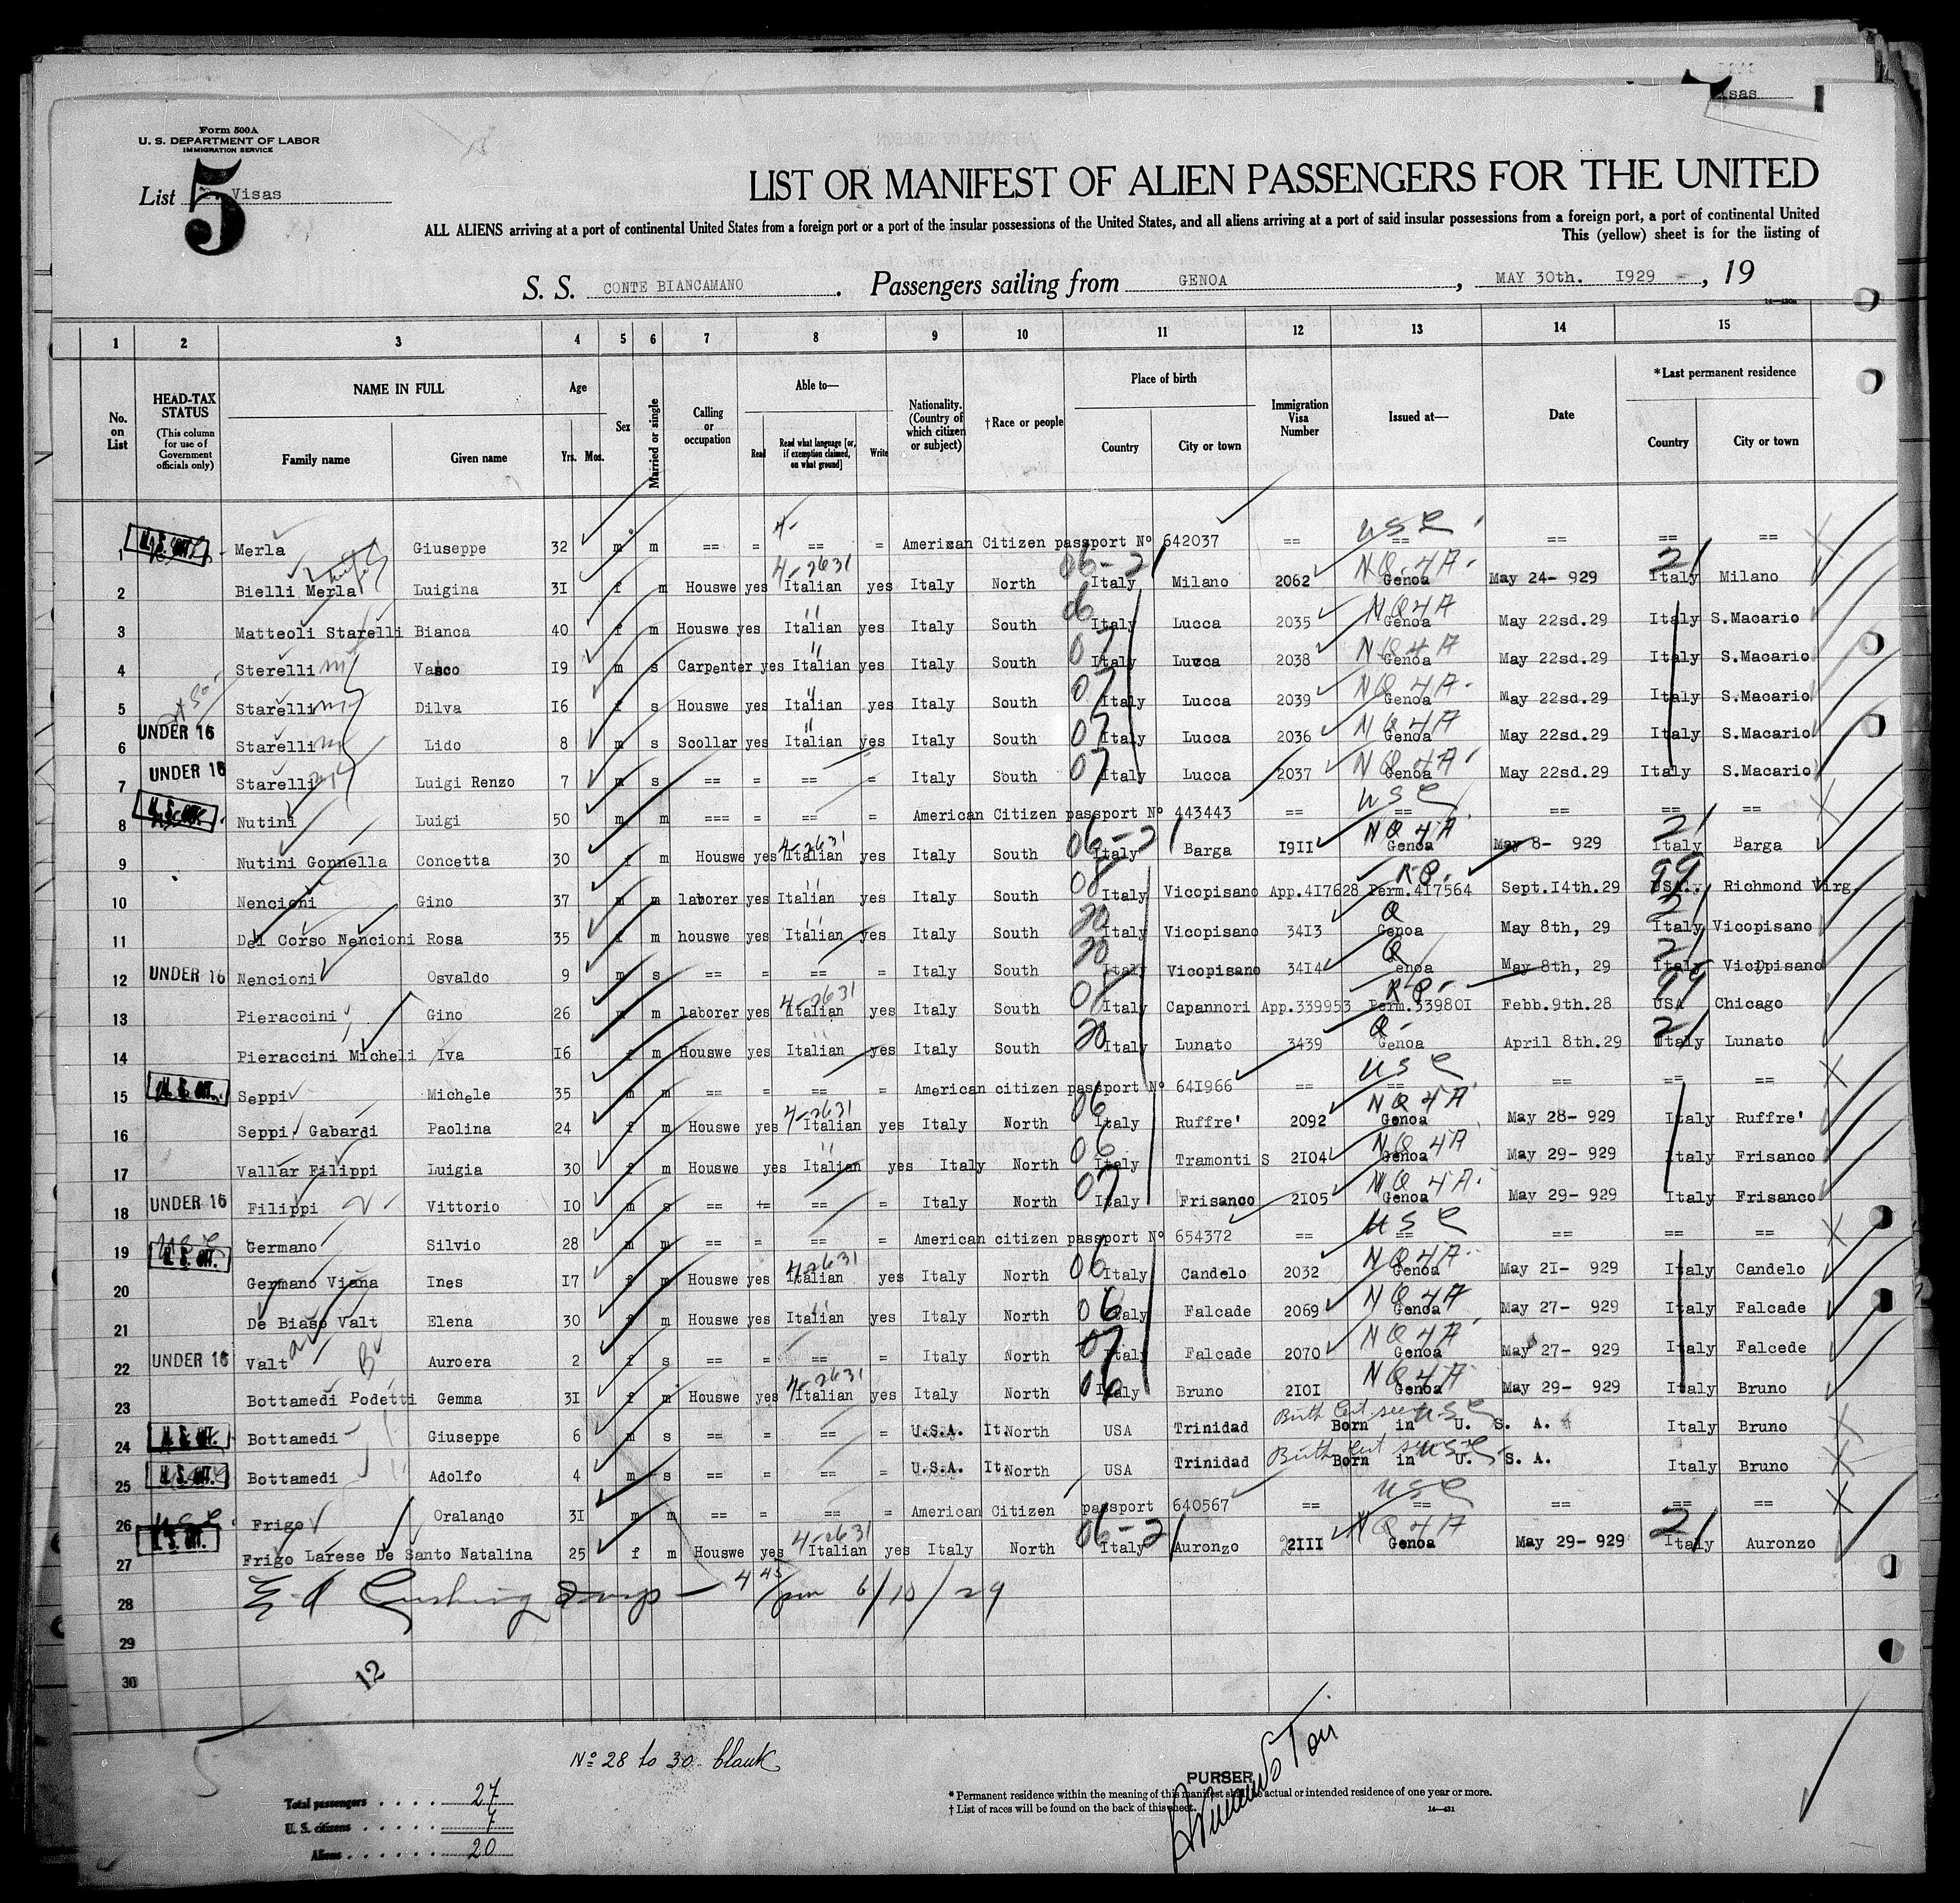 Form 500A
U. S. DEPARTMENT OF LABOR
IMMIGRATION SERVICE
List 5 Visas
LIST OR MANIFEST OF ALIEN PASSENGERS FOR THE UNITED
ALL ALIENS arriving at a port of continental United States from a foreign port or a port of the insular possessions of the United States, and all aliens arriving at a port of said insular possessions from a foreign port, a port of continental United
This (yellow) sheet is for the listing of
S. S. CONTE BIANCAMANO. Passengers sailing from GENOA, MAY 30th. I929, 19
1 2 3 4 5 6 7 8 9 10 11 12 13 14 15
No. on List
HEAD-TAX STATUS (This column for use of Government officials only)
NAME IN FULL Family name Given name
Age Yrs. Mos.
Sex
Married or single
Calling or occupation
Able to— Read Read what language [or, if exemption claimed, on what ground] Write
Nationality. (Country of which citizen or subject)
†Race or people
Place of birth Country City or town
Immigration Visa Number
Issued at—
Date
*Last permanent residence Country City or town
1 Merla Giuseppe 32 m m == = == = American Citizen passport Nº 642037 == U S C == == == ==
2 Bielli Merla Luigina 3I f m Houswe yes 4-2631 Italian yes Italy North 06-21 Italy Milano 2062 NQ-4A- Genoa May 24- 929 21 Italy Milano
3 Matteoli Starelli Bianca 40 f m Houswe yes " Italian yes Italy South 06 Italy Lucca 2035 NQ4A Genoa May 22sd.29 Italy S.Macario
4 Sterelli Vasco I9 m s Carpenter yes " Italian yes Italy South 07 Italy Lucca 2038 NQ4A Genoa May 22sd.29 Italy S.Macario
5 Starelli Dilva I6 f s Houswe yes " Italian yes Italy South 07 Italy Lucca 2039 NQ4A- Genoa May 22sd.29 Italy S.Macario
6 UNDER 16 Starelli Lido 8 m s Scollar yes " Italian yes Italy South 07 Italy Lucca 2036 NQ4A Genoa May 22sd.29 Italy S.Macario
7 UNDER 16 Starelli Luigi Renzo 7 m s == = == = Italy South 07 Italy Lucca 2037 NQ4A Genoa May 22sd.29 Italy S.Macario
8 Nutini Luigi 50 m m === = == = American Citizen passport Nº 443443 == U S C == == == ==
9 Nutini Gonnella Concetta 30 f m Houswe yes 4-2631 Italian yes Italy South 06-21 Italy Barga I9II NQ4A Genoa May 8- 929 21 Italy Barga
10 Nencioni Gino 37 m m laborer yes " Italian yes Italy South 08 Italy Vicopisano App.4I7628 RP. Perm.4I7564 Sept.I4th.29 99 USA. Richmond Virg.
11 Del Corso Nencioni Rosa 35 f m houswe yes " Italian yes Italy South 20 Italy Vicopisano 34I3 Q Genoa May 8th, 29 21 Italy Vicopisano
12 UNDER 16 Nencioni Osvaldo 9 m s == = == = Italy South 20 Italy Vicopisano 34I4 Q Genoa May 8th, 29 21 Italy Vicopisano
13 Pieraccini Gino 26 m m laborer yes 4-2631 Italian yes Italy South 08 Italy Capannori App.339953 RP- Perm.33980I Febb.9th.28 99 USA Chicago
14 Pieraccini Micheli Iva I6 f m Houswe yes " Italian yes Italy South 20 Italy Lunato 3439 Q- Genoa April 8th.29 21 Italy Lunato
15 Seppi Michele 35 m m == = == = American citizen passport Nº 64I966 == U S C == == == ==
16 Seppi Gabardi Paolina 24 f m Houswe yes 4-2631 Italian yes Italy North 06 Italy Ruffre' 2092 NQ4A Genoa May 28- 929 Italy Ruffre'
17 Vallar Filippi Luigia 30 f m Houswe yes " Italian yes Italy North 06 Italy Tramonti S 2I04 NQ4A Genoa May 29- 929 Italy Frisanco
18 UNDER 16 Filippi Vittorio I0 m s == = == = Italy North 07 Italy Frisanco 2I05 NQ4A. Genoa May 29- 929 Italy Frisanco
19 Germano Silvio 28 m m == = == = American citizen passport Nº 654372 == U S C == == == ==
20 Germano Viana Ines I7 f m Houswe yes 4-2631 Italian yes Italy North 06 Italy Candelo 2032 NQ4A Genoa May 2I- 929 Italy Candelo
21 De Biaso Valt Elena 30 f m Houswe yes " Italian yes Italy North 06 Italy Falcade 2069 NQ4A Genoa May 27- 929 Italy Falcade
22 UNDER 16 Valt Auroera 2 f s == = == = Italy North 07 Italy Falcade 2070 NQ4A Genoa May 27- 929 Italy Falcede
23 Bottamedi Podetti Gemma 3I f m Houswe yes 4-2631 Italian yes Italy North 06 Italy Bruno 2I0I NQ4A Genoa May 29- 929 Italy Bruno
24 Bottamedi Giuseppe 6 m s == = == = U.S.A. It.North USA Trinidad Birth Cert seen U S C Born in U. S. A. Italy Bruno
25 Bottamedi Adolfo 4 m s == = == = U.S.A. It.North USA Trinidad Birth Cert seen U S C Born in U. S. A. Italy Bruno
26 Frigo Oralando 3I m m == = == = American Citizen passport 640567 == U S C == == == ==
27 Frigo Larese De Santo Natalina 25 f m Houswe yes 4-2631 Italian yes Italy North 06-21 Italy Auronzo 2III NQ4A Genoa May 29- 929 21 Italy Auronzo
28 Cushing Insp - 4 45/pm 6/10/29
29
30
12
Nº 28 to 30 blank
Total passengers . . . . 27
U. S. citizens . . . . . 7
Aliens . . . . . . 20
PURSER
* Permanent residence within the meaning of this manifest shall be actual or intended residence of one year or more.
† List of races will be found on the back of this sheet.